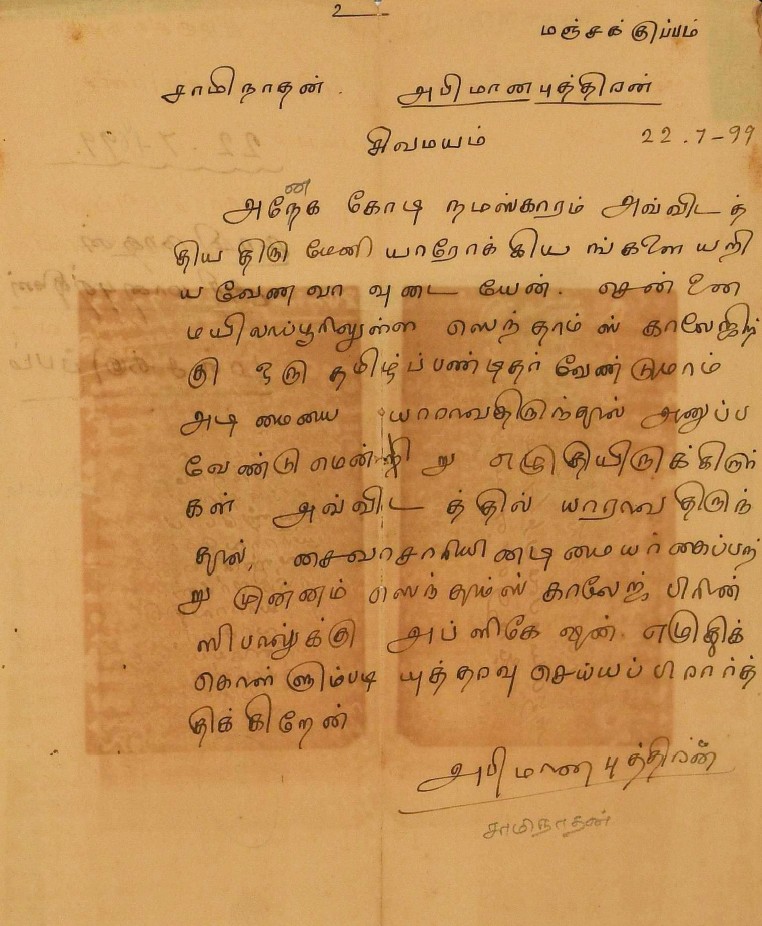 2
மஞ்சக்குப்பம்
சாமிநாதன். அபிமானபுத்திரன்
சிவமயம் 22.7-99
அநேக கோடி நமஸ்காரம் அவ்விடத்
திய திரு மேனி யாரோக்கியங்களை யறி
ய வேணவாவுடையேன். சென்னை
மயிலாப்பூரிலுள்ள ஸெந்தாம்ஸ் காலேஜிற்
கு ஒரு தமிழ்ப்பண்டிதர் வேண்டுமாம்
அடிமையை யாராவதிருந்தால் அனுப்ப
வேண்டுமென்று எழுதியிருக்கிறார்
கள் அவ்விடத்தில் யாராவதிருந்
தால், சைவாசாரியினடிமையர்
று முன்னம் ஸெந்தாம்ஸ் காலேஜ் பிரின்
ஸிபாலுக்கு அப்ளிகேஷன் எழுதிக்
கொள்ளும்படி யுத்தரவு செய்யப் பிரார்த்
திக்கிறேன்
அபிமானபுத்திரன்
சாமிநாதன்